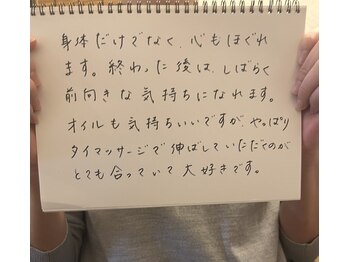 身体だけでなく、心もほぐれ
ます。終わった後は、しばらく
前向きな気持ちになれます。
オイルも気持ちいいですが、やっぱり
タイマッサージで伸ばしていただくのが
とても合っていて大好きです。